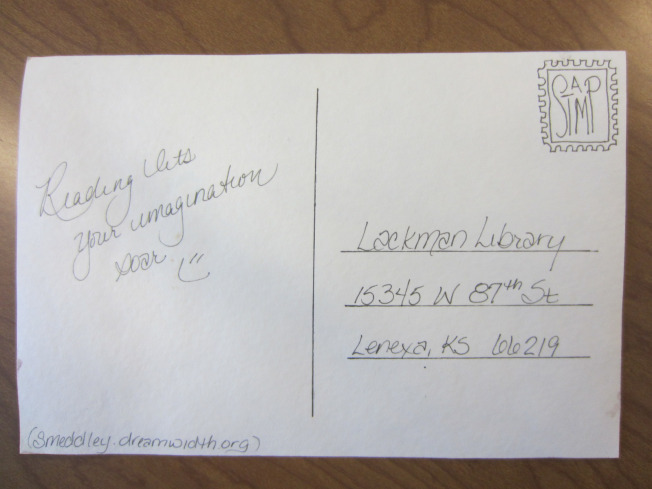 Reading lets
your imagination
soar!
STAMP
Lackman Library
15345 W 87th St
Lenexa, KS 66219
(smeddley.dreamwidth.org)